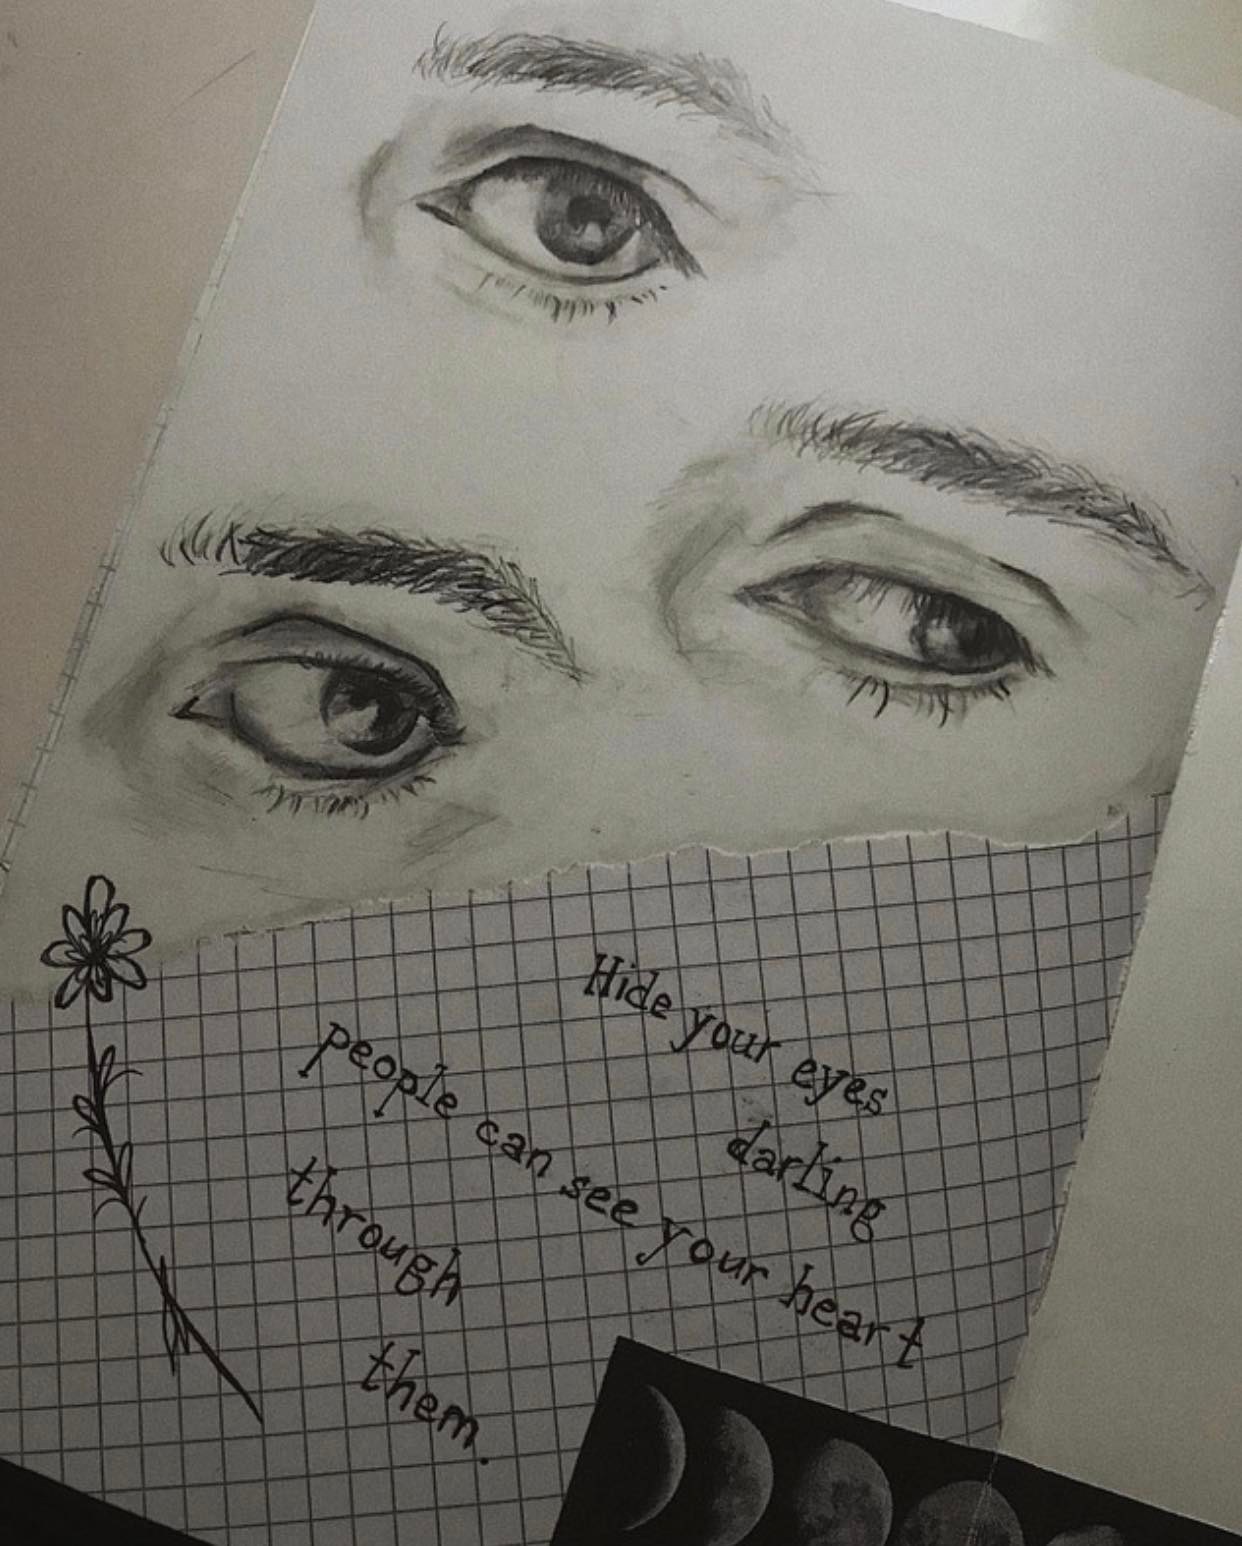 Hide your eyes
darling
people can see your heart
through
them.